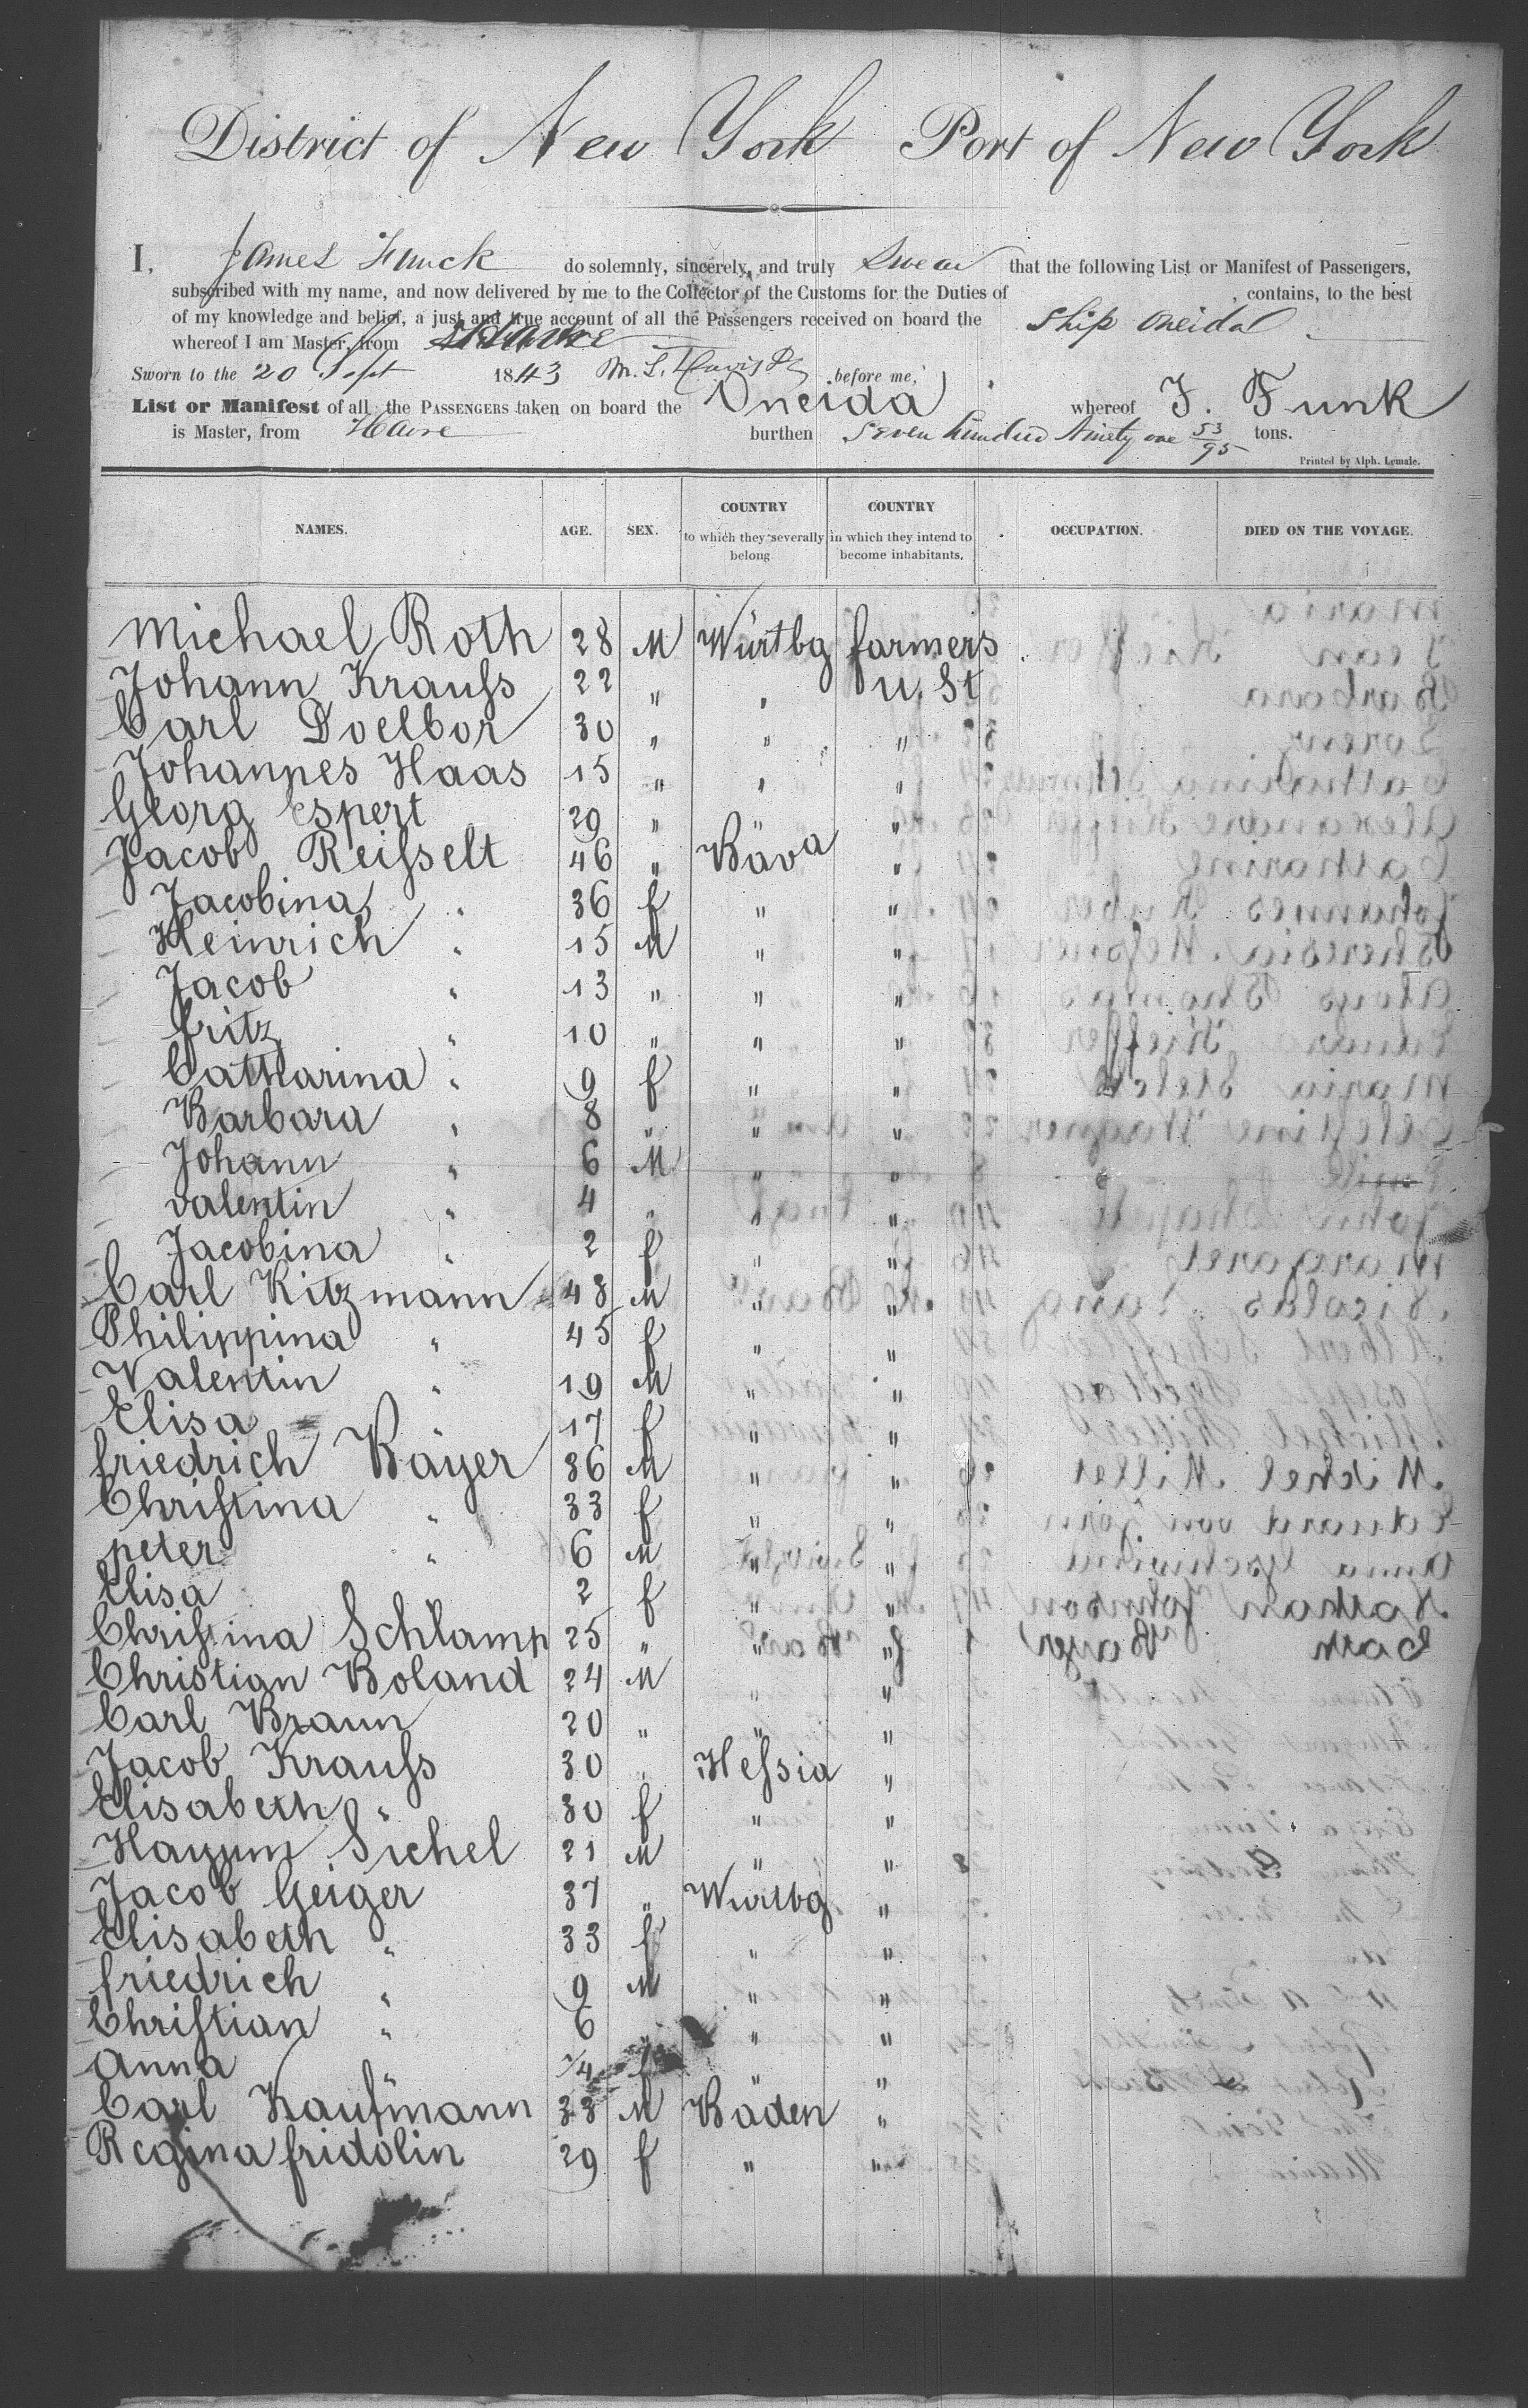 District of New York Port of New York
I, James Funck do solemnly, sincerely, and truly Swear that the following List or Manifest of Passengers,
subscribed with my name, and now delivered by me to the Collector of the Customs for the Duties of , contains, to the best
of my knowledge and belief, a just and true account of all the Passengers received on board the Ship Oneida
whereof I am Master, from Havre
Sworn to the 20 Sept 1843 before me,
List or Manifest of all the PASSENGERS taken on board the Oneida whereof J. Funk
is Master, from Havre burthen Seven hundred Ninety one 53/95 tons.
Printed by Alph. Lemale.
NAMES. AGE. SEX. COUNTRY to which they severally belong COUNTRY in which they intend to become inhabitants. OCCUPATION. DIED ON THE VOYAGE.
Michael Roth 28 M Würtbg farmers
Johann Krauſs 22 " " U. St
Carl Doelbor 30 " " "
Johannes Haas 15 " " "
Georg Espert 29 " " "
Jacob Reiſselt 46 " Bava "
Jacobina " 36 f " "
Heinrich " 15 M " "
Jacob " 13 " " "
fritz " 10 " " "
Catharina " 9 f " "
Barbara " 8 " " "
Johann " 6 M " "
valentin " 4 " " "
Jacobina " 2 f " "
Carl Kitzmann 48 M " "
Philippina " 45 f " "
Valentin " 19 M " "
Elisa " 17 f " "
friedrich Bäyer 36 M " "
Chriſtina " 33 f " "
peter " 6 M " "
Elisa 2 f " "
Chriſtina Schlamp 25 " " "
Christian Boland 24 M " "
Carl Braun 20 " " "
Jacob Krauſs 30 " Heſsia "
Elisabeth " 30 f " "
Hayum Sichel 21 M " "
Jacob Geiger 37 " Wurtbg "
Elisabeth " 33 f " "
friedrich " 9 M " "
Chriſtian " 6 " " "
Anna " 1/4 f " "
Carl Kaufmann 33 M Baden "
Regina fridolin 29 f " "